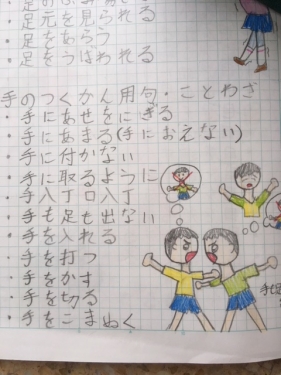 ・足元を見られる
・足をあらう
・足をうばわれる
手のつくかん用句・ことわざ
・手にあせをにぎる
・手にあまる(手におえない)
・手に付かない
・手に取るように
・手八丁口八丁
・手も足も出ない
・手を入れる
・手を打つ
・手をかす
・手を切る
・手をこまぬく